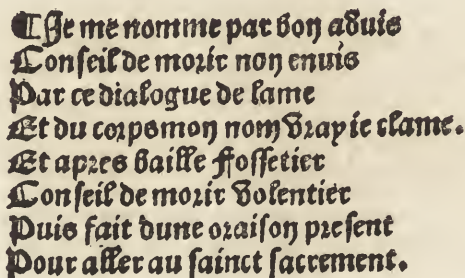 ⸿ Je me nomme par bon aduis
Conseil de morir non enuis
Par ce dialogue de lame
Et du corps mon nom vray ie clame.
Et apres baille ffossetier
Conseil de morir volentier
Puis fait dune oraison present
Pour aller au sainct sacrement.